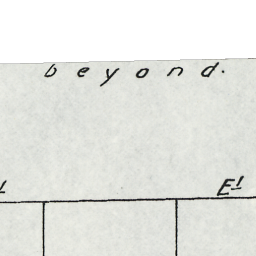 beyond.
E'